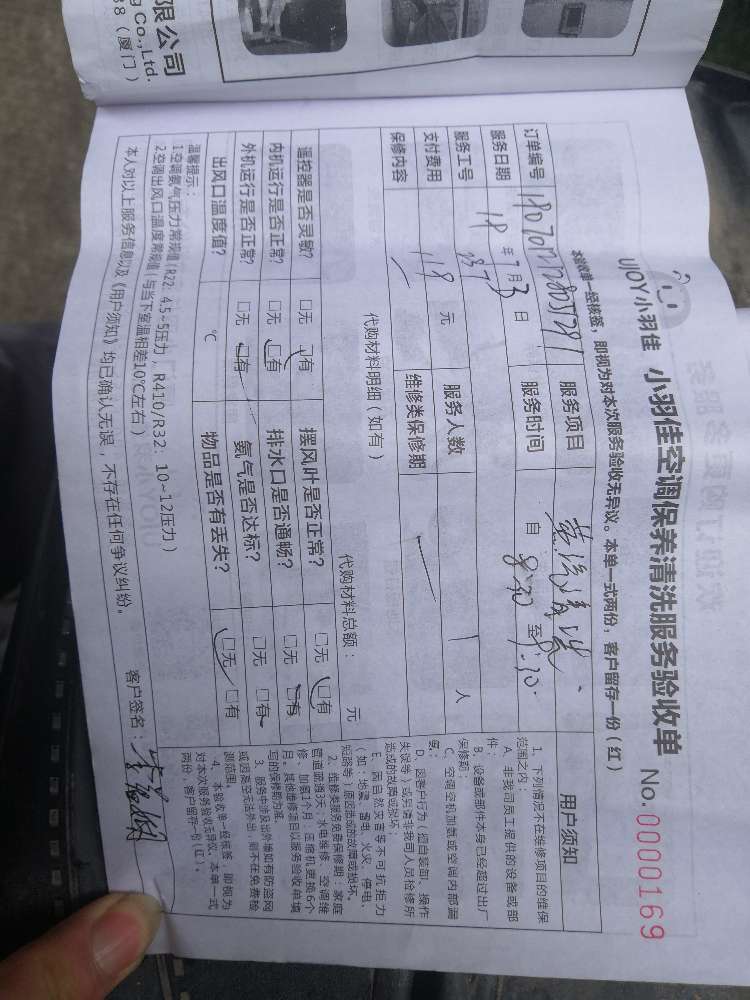 限公司
g Co.,Ltd.
38（厦门）
UJOY小羽佳 小羽佳空调保养清洗服务验收单 No.0000169
本验收单一经核签，即视为对本次服务验收无异议。本单一式两份，客户留存一份（红）
订单编号 服务项目
服务日期 18年7月3日 服务时间 自8:30至9:10
服务工号 服务人数 1人
支付费用 118元 维修类保修期
保修内容
代购材料明细（如有） 代购材料总额： 元
遥控器是否灵敏？ □无 □有 摆风叶是否正常？ □无 □有
内机运行是否正常？ □无 □有 排水口是否通畅？ □无 □有
外机运行是否正常？ □无 □有 氨气是否达标？ □无 □有
出风口温度值？ ℃ 物品是否有丢失？ □无 □有
温馨提示：
1空调氨气压力常规值（R22：4.5~5压力，R410/R32：10~12压力）
2空调出风口温度常规值（与当下室温相差10℃左右）
本人对以上服务信息以及《用户须知》均已确认无误，不存在任何争议纠纷。 客户签名：
用户须知
1、下列情况不在维修项目的维保
范围之内：
A、非我司员工提供的设备或部
件；
B、设备或部件本身已经超过出厂
保修期；
C、空调空机加氨或空调内部漏
氨；
D、因客户行为（擅自装卸、操作
失误等）或另请非我司人员检修所
造成的故障或损坏
E、因自然灾害等不可抗拒力
（如：地震、雷电、火灾、停电、
短路等）原因造成的故障或损坏。
2、维修类服务免费保修期：家庭
管道疏通3天；水电维修、空调维
修、加氨1个月，压缩机更换6个
月，其他维修项目以服务验收单填
写的保修期为准。
3、服务中涉及出外墙如有防盗网
或因某空无法外出，则不在免费检
测范围。
4、本验收单一经核签，即视为
对本次服务验收无异议，本单一式
两份，客户留存一份（红）。